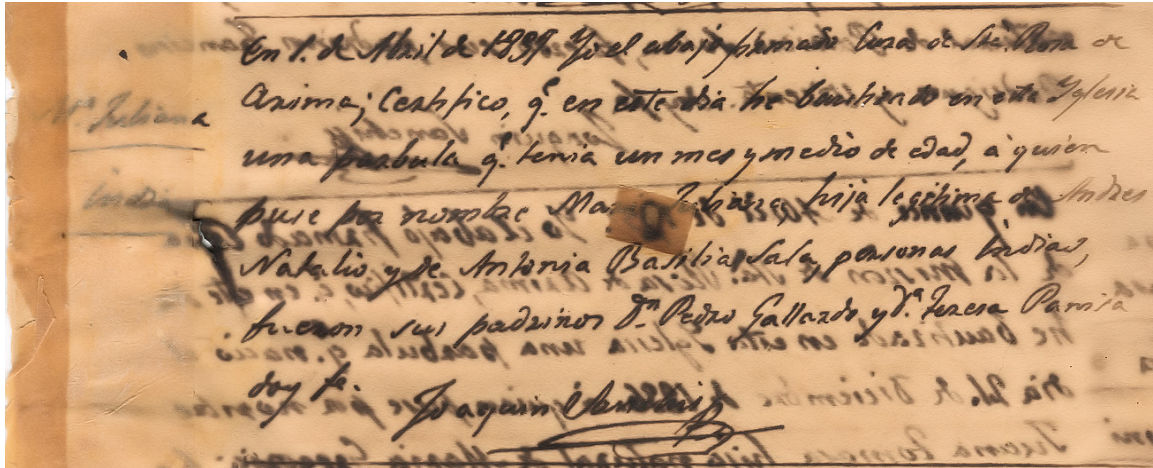 En 1. de Abril de 1837 Yo el abajo firmado Cura de Sta. Rosa de
Arima; Certifico, q.e en este dia he bautizado en esta Yglesia
Ma. Juliana
una parbula q.e tenia un mes y medio de edad, á quien
India
puse por nombre Juliana, hija legitima de Andres
Natalio y de Antonia Basilia Sala, personas Indias,
fueron sus padrinos Dn. Pedro Gallardo y Da. Teresa
doy fe.
Joaquin Sanchez